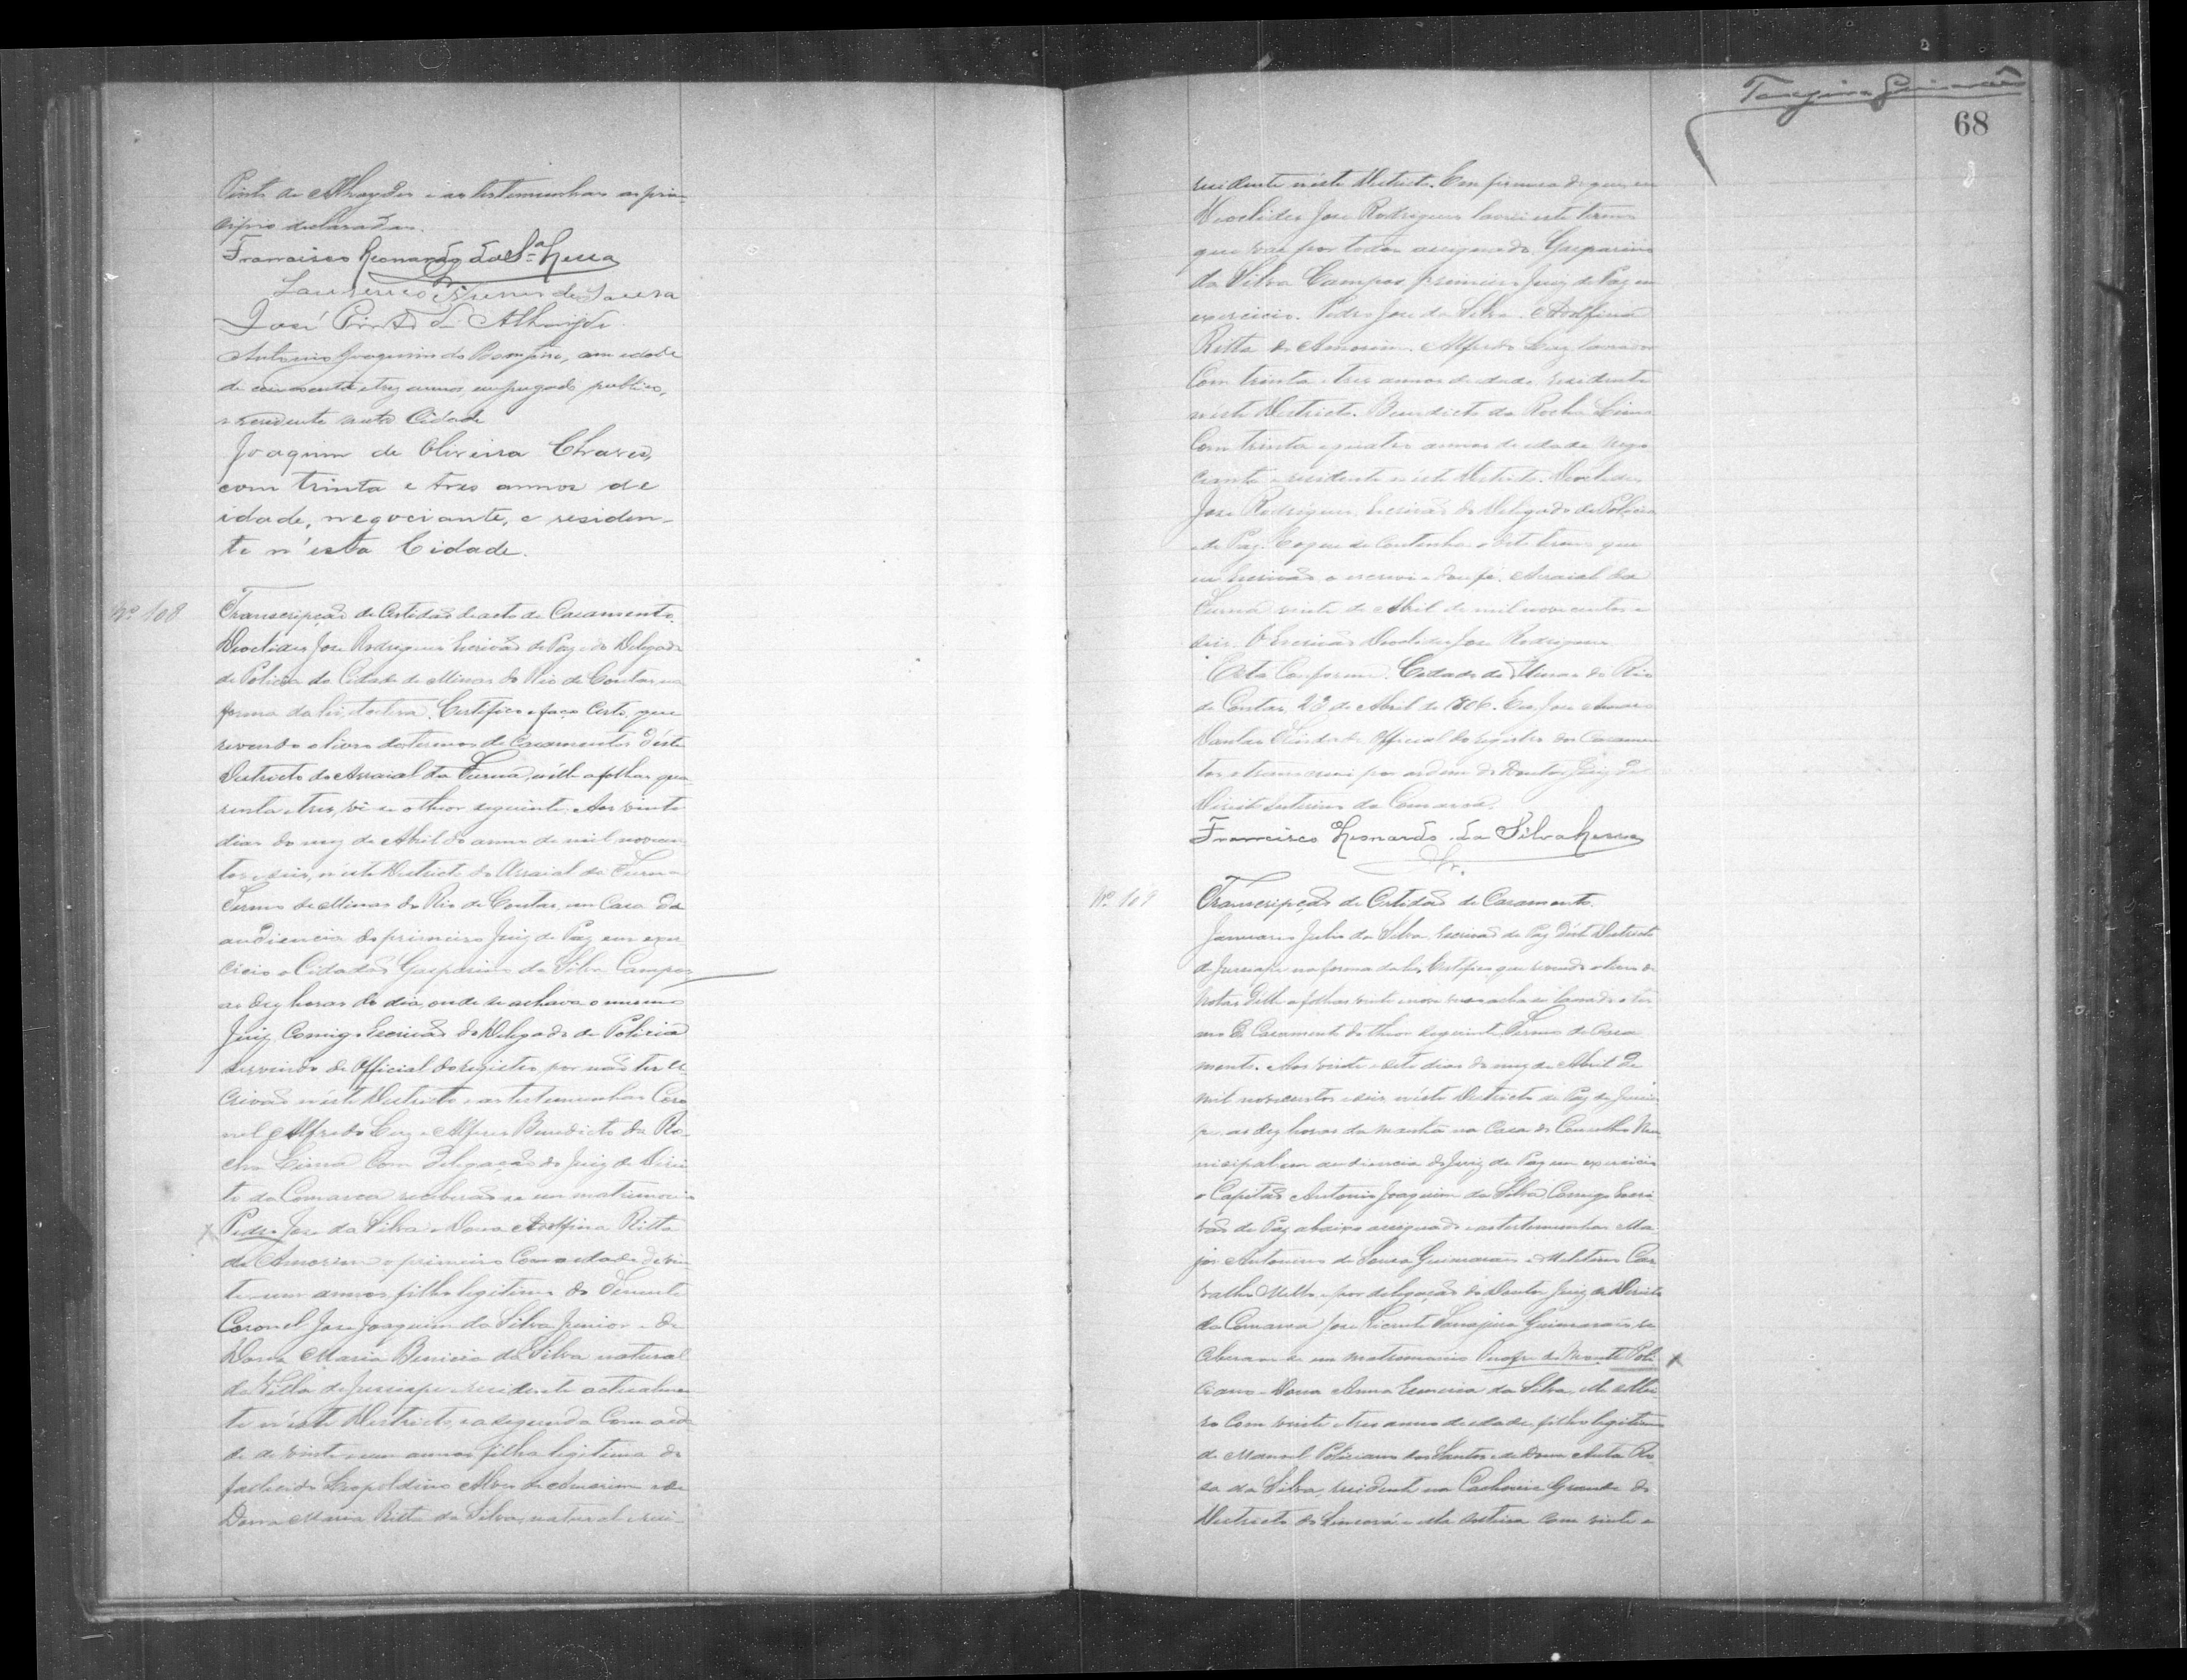 Pinto de Athaydes e as testemunhas a prin-
cipio declaradas.
Francisco Leonardo da S.ª Lessa
Laurenço Nunes de Sousa
José Pinto de Athayde
Antonio Joaquim do Bomfim, com idade
de cincoenta e trez annos, empregado publico,
e residente nesta Cidade
Joaquim de Oliveira Chaves,
com trinta e tres annos de
idade, negociante, e residen-
te n'esta Cidade.
Nº 108
Transcripção de Certidão de acto de Casamento.
Deoclides José Rodrigues Escrivão de Paz e do Delegado
de Policia da Cidade de Minas do Rio de Contas na
forma da lei, etc. Certifico e faço certo, que
revendo o livro dos termos de casamentos d'este
Districto do Arraial da Furna, n'elle a folhas qua-
renta e tres, vê-se o theor seguinte: Aos vinte
dias do mez de Abril do anno de mil novecen-
tos e seis, n'este Districto do Arraial da Furna
Termo de Minas do Rio de Contas, em Casa da
audiencia do primeiro Juiz de Paz em exer-
cicio o Cidadão Gasparino da Silva Campos
as dez horas do dia, onde se achava o mesmo
Juiz, Comigo Escrivão do Delegado de Policia
servindo de Official do registro, por não ter es-
crivão n'este Districto e as testemunhas Coro-
nel Alfredo Luz e Alferes Benedicto da Ro-
cha Lima Com delegação do Juiz de Direi-
to da Comarca receberão-se em matrimonio
Pedro José da Silva e Dona Adolfina Ritta
de Amorim o primeiro Com a idade de vin-
te e um annos, filho legitimo do Tenente
Coronel José Joaquim da Silva Junior e de
Dona Maria Benicia da Silva natural
da Villa de Jussiape e residente actualmen-
te n'este Districto, e a segunda Com a ida-
de de vinte e um annos filha legitima do
fallecido Leopoldino Alves de Amorim e de
Dona Maria Ritta da Silva, natural e resi-
68
residente n'este Districto. Em firmeza do que, eu
Deoclides José Rodrigues lavrei este termo
que vae por todos assignado. Gasparino
da Silva Campos primeiro Juiz de Paz em
exercicio. Pedro José da Silva. Adolfina
Ritta de Amorim. Alfredo Luz lavrador
Com trinta e tres annos de idade, residente
n'este Districto. Benedicto da Rocha Lima
Com trinta e quatro annos de idade nego-
ciante e residente n'este Districto. Deoclides
José Rodrigues, Escrivão do Delegado de Policia
e de Paz. E o que se continha o dito termo que
eu Escrivão o escrevi e dou fé. Arraial da
Furna vinte de Abril de mil novecentos e
seis. O Escrivão Deoclides José Rodrigues
Está Conforme. Cidade de Minas do Rio
de Contas, 23 de Abril de 1906. Eu, José
Dantas Official do registro dos Casamen-
tos o transcrevi por ordem do Doutor Juiz de
Direito interino da Comarca.
Francisco Leonardo da Silva Lessa
Nº 109
Transcripção de Certidão de Casamento.
Januario Julio da Silva, Escrivão de Paz d'este Districto
de Jussiape na forma da lei. Certifico que revendo o livro de
Notas d'elle a folhas vinte e nove verso acha-se lavrado o ter-
mo de Casamento do theor seguinte: Termo de Casa-
mento. Aos vinte e sete dias do mez de Abril de
mil novecentos e seis n'este Districto de Paz de Jussia-
pe, as dez horas da manhã na Casa do Conselho Mu-
nicipal em audiencia do Juiz de Paz em exercicio
o Capitão Antonio Joaquim da Silva, Comigo Escri-
vão de Paz abaixo assignado e as testemunhas Ma-
jor Antonino de Sousa Guimarães e Militino Car-
valho Mello, e por delegação do Doutor Juiz de Direito
da Comarca José Vicente Tanajura Guimarães, re-
ceberam-se em matrimonio Onofre do Monte Poli-
ciano e Dona Anna Esmeria da Silva,
Com vinte e tres annos de idade, filho legitimo
de Manoel Policiano dos Santos e de Dona Anta Ro-
sa da Silva, residente na Cachoeira Grande do
Districto do Sincorá e ella solteira com vinte e